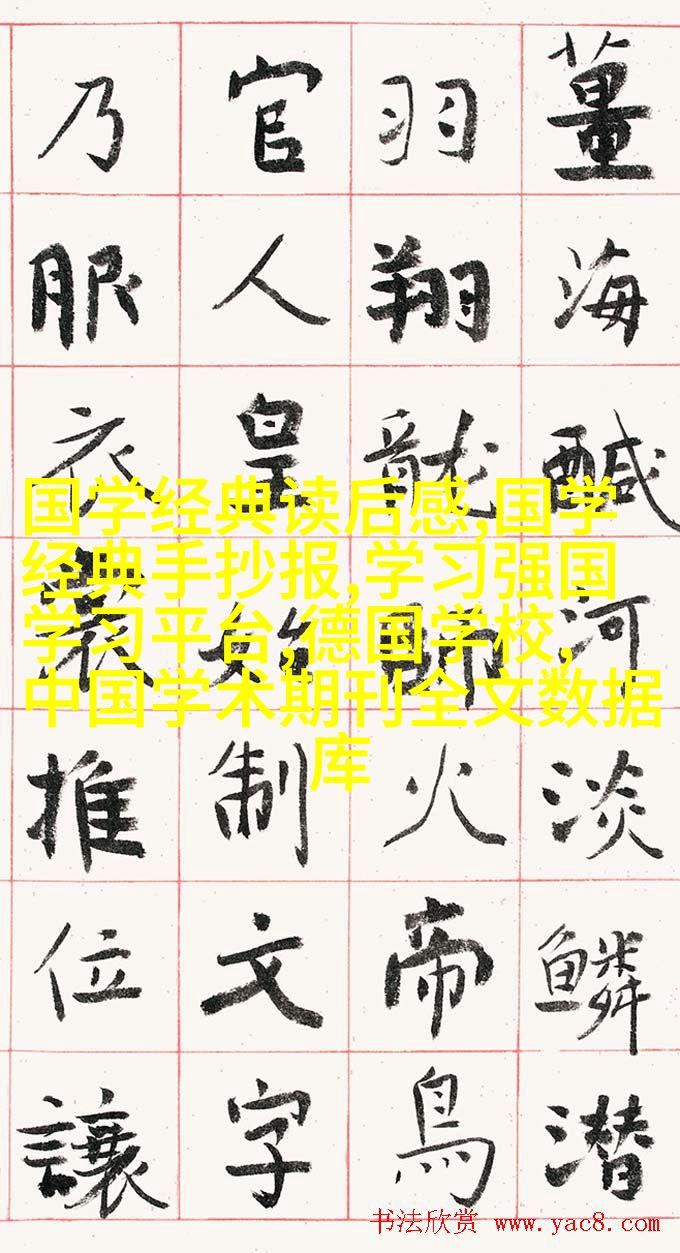 薑海醎河淡鳞潜
羽翔龍師火帝鳥
官人皇始制文字
乃服衣裳推位讓
国学经典读后感,国学
经典手抄报,学习强国
学习平台,德国学校,
中国学术期刊全文数据
库
书法欣赏 www.yac8.com